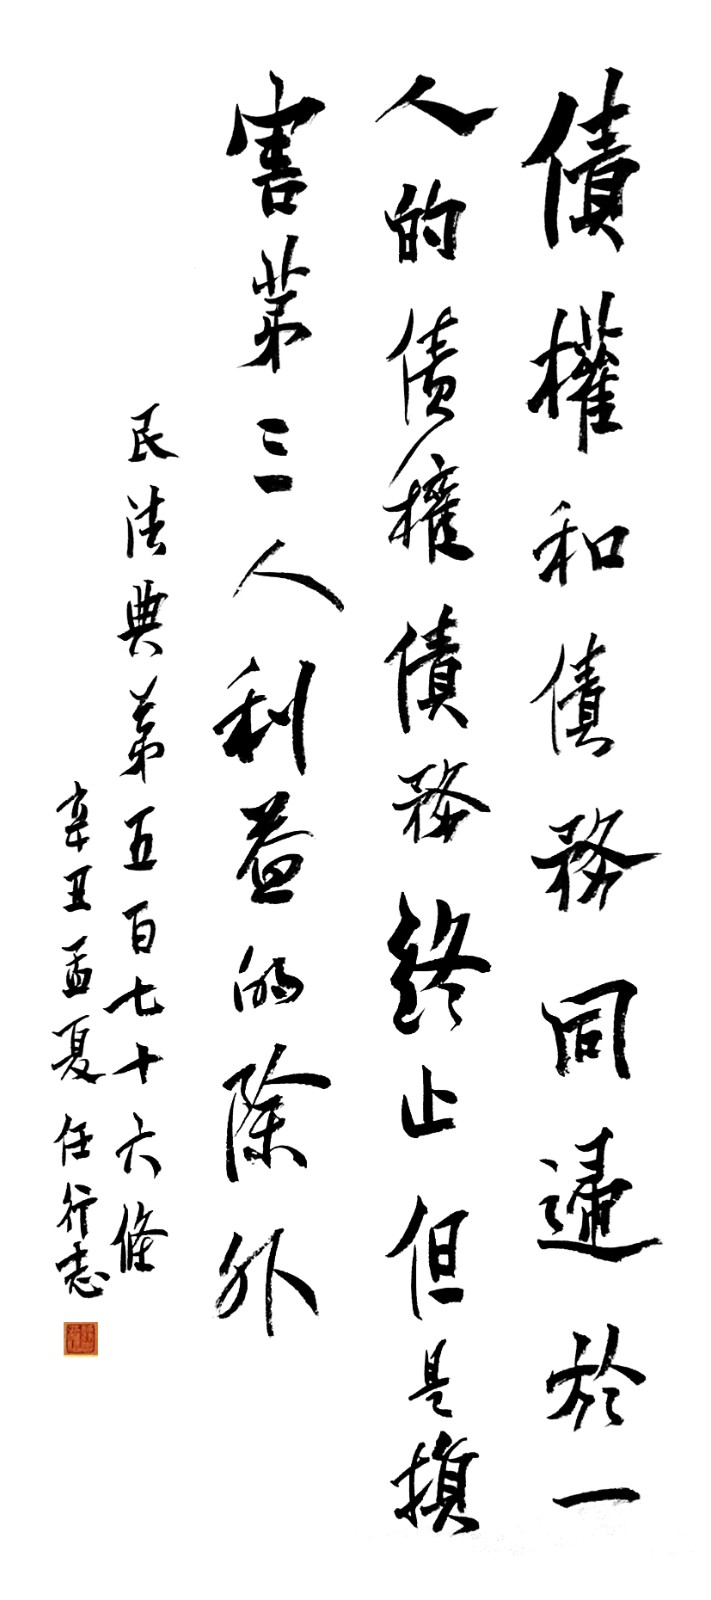 債權和債務同歸於一
人的債權債務終止但是損
害第三人利益的除外
民法典第五百七十六條
辛丑孟夏任行志